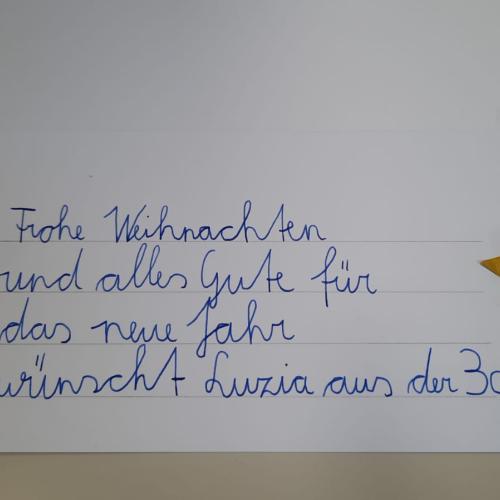 Frohe Weihnachten
und alles Gute für
das neue Jahr
wünscht Luzia aus der 3c